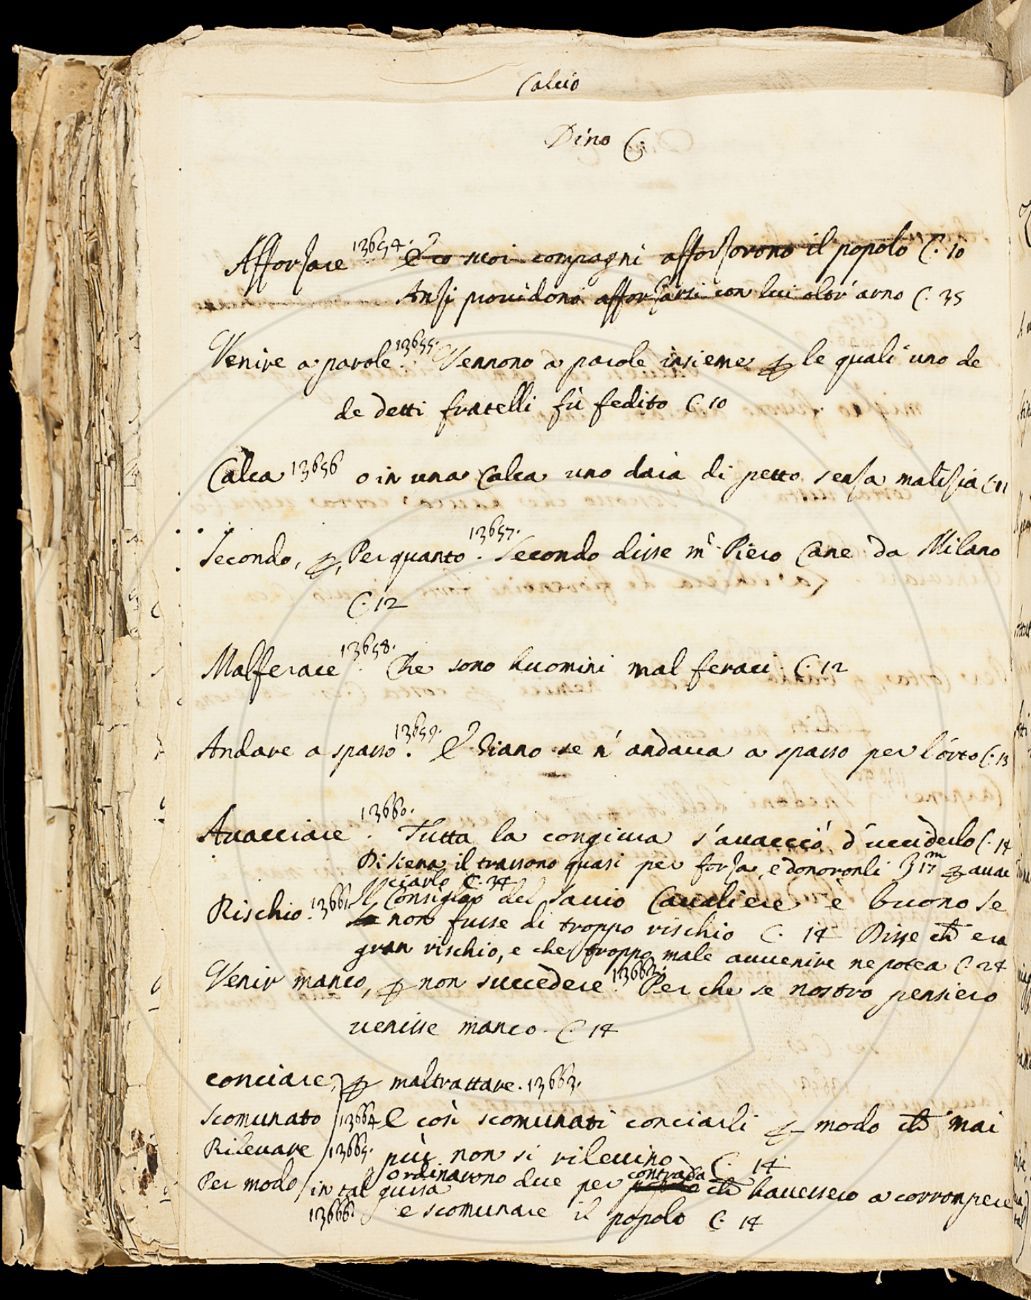 Calcio
Dino C.
Afforzare 13654. E co suoi compagni afforzorono il popolo C. 10
Anzi providono afforzarsi con lui oltr'arno C. 35
Venire a parole 13655. Vennono a parole insieme per le quali uno de
de detti fratelli fù fedito C. 10
Calca 13656 o in una Calca uno daia di petto senza malizia C. 11
Secondo, per, Per quanto 13657. Secondo disse mr Piero Cane da Milano
C. 12
Malferace 13658. Che sono huomini mal feraci C. 12
Andare a spasso 13659. E Giano se n'andava a spasso per l'orto C. 13
Avacciare 13660. Tutta la congiura s'avacciò d'ucciderlo C. 14
Di Siena il trassono quasi per forza, e donoronli 17m per avac
ciarlo C. 34
Rischio 13661. Il Consiglio del savio Cavaliere è buono se
non fusse di troppo rischio C. 14 Disse che era
gran rischio, e che troppo male avvenire ne potea C. 24
Venir manco, per non succedere 13662. Perche se nostro pensiero
venisse manco. C. 14
conciare, per maltrattare. 13663.
Scomunato 13664 E così scomunati conciarli per modo che mai
Rilevare 13665. più non si rilevino C. 14
Per modo in tal guisa ordinarono due per contrada che havessero a corrompere
13666. e scomunare il popolo C. 14